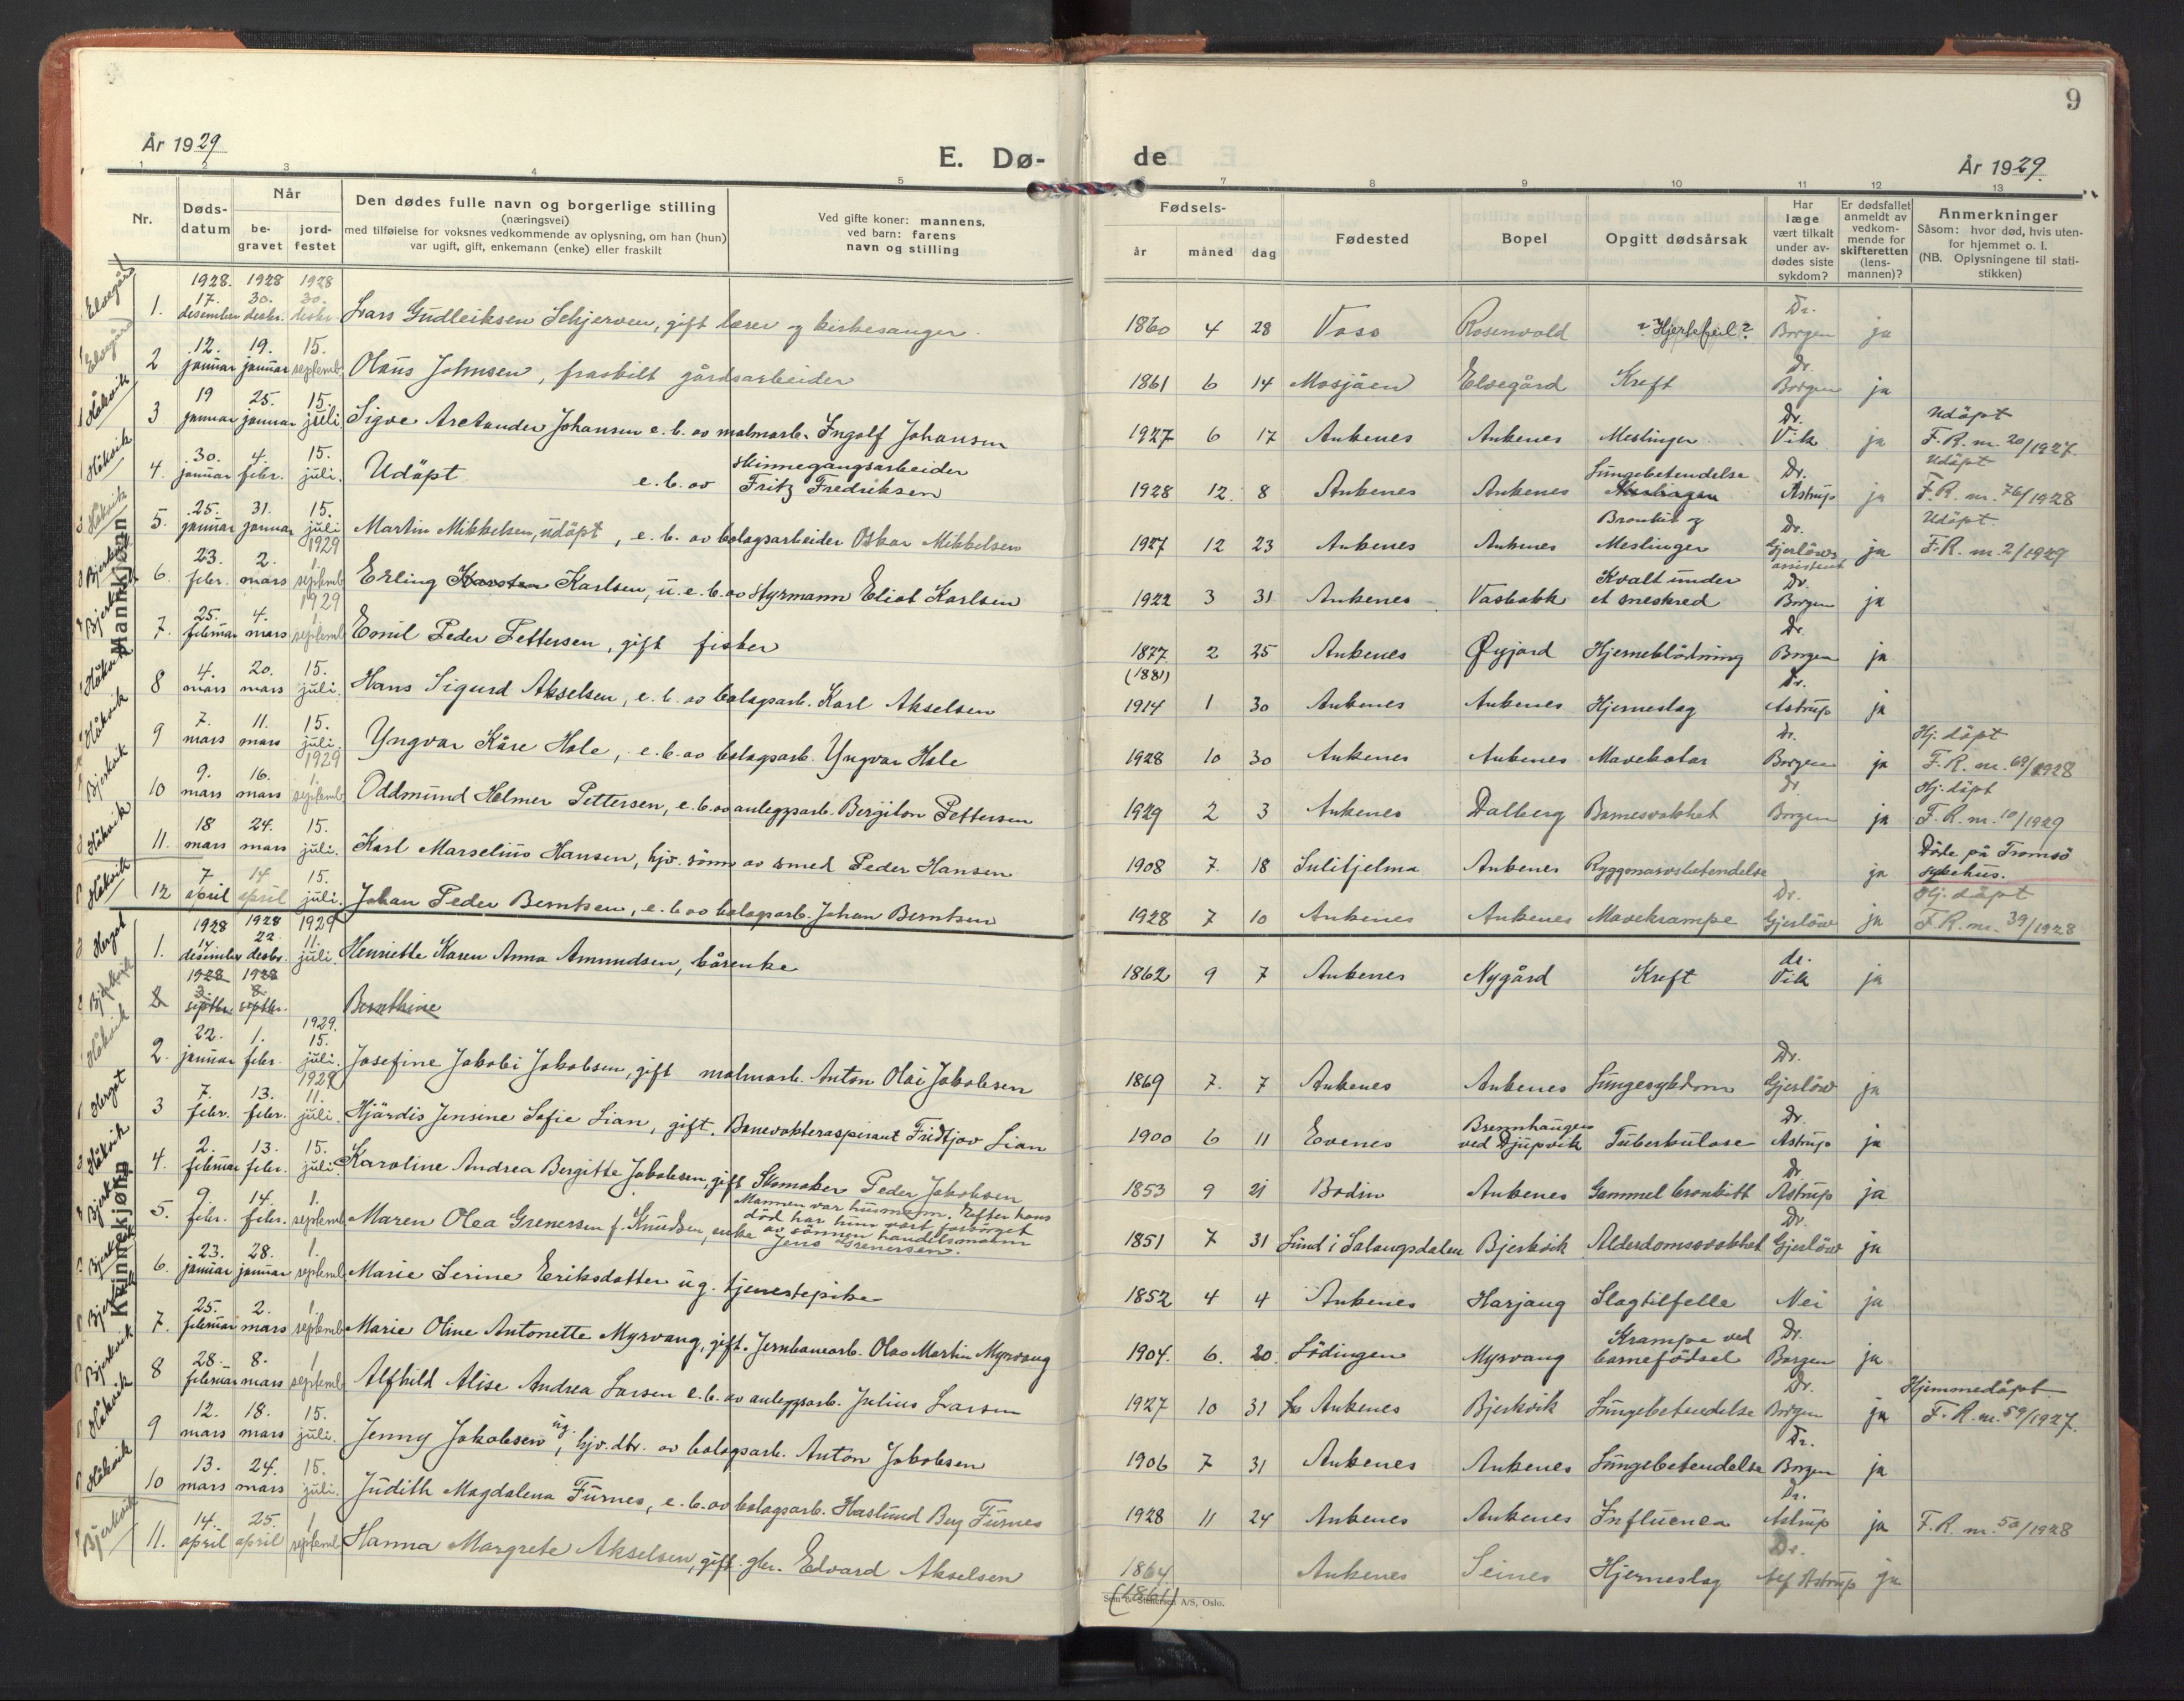 9
År 1929
E. Dø-
de
År 1929.
1 2 3 4 5 7 8 9 10 11 12 13
Nr.
Døds-
datum
Når
be-
gravet
jord-
festet
Den dødes fulle navn og borgerlige stilling
(næringsvei)
med tilføielse for voksnes vedkommende av oplysning, om han (hun)
var ugift, gift, enkemann (enke) eller fraskilt
Ved gifte koner: mannens,
ved barn: farens
navn og stilling
Fødsels-
år måned dag
Fødested
Bopel
Opgitt dødsårsak
Har
læge
vært tilkalt
under av-
dødes siste
sykdom?
Er dødsfallet
anmeldt av
vedkom-
mende for
skifteretten
(lens-
mannen)?
Anmerkninger
Såsom: hvor død, hvis uten-
for hjemmet o. l.
(NB. Oplysningene til stati-
stikken)
Mannkjønn
Elvegård 1. 1928. 17. desember 1928 30. desbr. 1928 30. desbr. Lars Gudleiksen Schjerven, gift lærer og kirkesanger. 1860 4 28 Voss Rosenvold ? Hjertefeil? Dr. Borgen ja
Elvegård 2 12. januar 19. januar 15. septemb. Olaus Johnsen, fraskilt gårdsarbeider 1861 6 14 Mosjøen Elvegård Kreft Dr. Borgen ja
Håkvik 3 19 januar 25. januar 15. juli Sigve Arctander Johansen e. b. av malmarb. Ingolf Johansen 1927 6 17 Ankenes Ankenes Meslinger. Dr. Vik ja Udöpt F. R. nr. 20/1927.
Håkvik 4. 30. januar 4. febr. 15. juli. Udöpt e. b. av skinnegangsarbeider Fritz Fredriksen 1928 12. 8 Ankenes Ankenes Lungebetendelse Meslinger Dr. Astrup ja Udöpt F. R. nr. 76/1928
Håkvik 5. 25. januar 31. januar 15. juli Martin Mikkelsen, udöpt, e. b. av bolagsarbeider Oskar Mikkelsen 1927 12 23 Ankenes Ankenes Bronkit og Meslinger Dr. Gjerlöws assistent ja Udöpt. F. R. nr. 2/1929
Bjerkvik 6. 23. febr. 2. mars 1929 1. septemb. Erling Karsten Karlsen, u. e. b. av styrmann Eliot Karlsen 1922 3 31 Ankenes Vasbakk Kvalt under et sneskred Dr. Borgen ja
Bjerkvik 7. 25. februar 4. mars 1929 1. septemb. Emil Peder Pettersen, gift fisker 1877 (1881) 2 25 Ankenes Øyjord Hjerneblödning Dr. Borgen ja
Håkvik 8 4. mars 20. mars 15. juli. Hans Sigurd Akselsen, e. b. av bolagsarb. Karl Akselsen 1914 1 30 Ankenes Ankenes Hjerneslag Dr. Astrup ja
Håkvik 9 7. mars 11. mars 15. juli. Yngvar Kåre Hole, e. b. av bolagsarb. Yngvar Hole 1928 10 30 Ankenes Ankenes Mavekatar Dr. Borgen ja Hj. döpt F. R. nr. 69/1928
Bjerkvik 10 9. mars 16. mars 1929 1. septemb. Oddmund Helmer Pettersen, e. b. av anleggsarb. Bergiton Pettersen 1929 2 3 Ankenes Dalberg Barnesvakhet Dr. Borgen ja Hj. döpt F. R. nr. 10/1929
Håkvik 11. 18 mars 24. mars 15. juli. Karl Marselius Hansen, hjv. sönn av smed Peder Hansen 1908 7. 18 Sulitjelma Ankenes Ryggmarvsbetendelse ja Döde på Tromsö sykehus.
Håkvik 12 7 april 14 april 15. juli. Johan Peder Berntsen, e. b. av bolagsarb. Johan Berntsen 1928 7 10 Ankenes Ankenes Mavekrampe Dr. Gjerlöw ja Hj. döpt F. R. nr. 39/1928
Kvinnekjønn
Herget 1. 1928 14 desember 1928 22 desbr. 1929 11. juli. Henriette Karen Anna Amundsen, kårenke 1862 9 7 Ankenes Nygård Kreft dr. Vik ja
Bjerkvik 2 1928 3. septbr. 1928 8. septbr. Bernthine
Håkvik 2. 22. januar 1. febr. 1929. 15. juli. Josefine Jakobi Jakobsen, gift malmarb. Anton Olai Jakobsen 1869 7. 7 Ankenes Ankenes Lungesykdom Dr. Gjerlöw ja
Herget 3 7. febr. 13. febr. 1929 11. juli. Hjördis Jensine Sofie Lian, gift. Banevokteraspirant Fridtjov Lian 1900 6 11 Evenes Brennhaugen ved Djupvik Tuberkulose Dr. Astrup ja
Håkvik 4. 2. februar 13. febr. 15. juli. Karoline Andrea Bergitte Jakobsen, gift Skomaker Peder Jakobsen 1853 9 21 Bodin Ankenes Gammel bronkitt Dr Astrup ja
Bjerkvik 5. 9. febr. 14. febr. 1. septemb. Maren Olea Grenersen f. Knudsen, enke Mannen var husmann. Efter hans död har hun vært forsörget av sönnen handelsmann Jens Grenersen. 1851 7 31 Lund i Salangsdalen Bjerkvik Alderdomssvakhet Dr. Gjerlöw ja
Bjerkvik 6. 23. januar 28. januar 1. septemb. Marie Serine Eriksdatter ug. tjenestepike 1852 4 4 Ankenes Harjang Slagtilfelle Nei ja
Bjerkvik 7. 25. februar 2. mars 1. septemb. Marie Oline Antonette Myrvang, gift. Jernbanearb. Olav Martin Myrvang 1904. 6. 20. Lödingen Myrvang Krampe ved barnefödsel Dr. Borgen ja
Bjerkvik 8 28. februar 8. mars 1. septemb. Alfhild Alise Andrea Larsen e. b. av anleggsarb. Julius Larsen 1927 10 31 Ankenes Bjerkvik Lungebetendelse Dr. Borgen ja Hjemmedöpt F. R. nr. 59/1927.
Håkvik 9 12. mars 18. mars 15. juli. Jenny Jakobsen ug., hjv. dtr. av bolagsarb. Anton Jakobsen 1906 7 31 Ankenes Ankenes Lungebetendelse Dr. Borgen ja
Håkvik 10 13. mars 24. mars 15. juli. Judith Magdalena Furnes, e. b. av bolagsarb. Haslund Berg Furnes 1928 11 24 Ankenes Ankenes Influenca Dr. Astrup ja F. R. nr. 50/1928
Bjerkvik 11. 14. april 25. april 1. septemb. Hanna Margrete Akselsen, gift gbr. Edvard Akselsen 1864 (1861) Ankenes Seines Hjerneslag Dr. Alf Astrup ja
Sem & Stenersen A/S, Oslo.